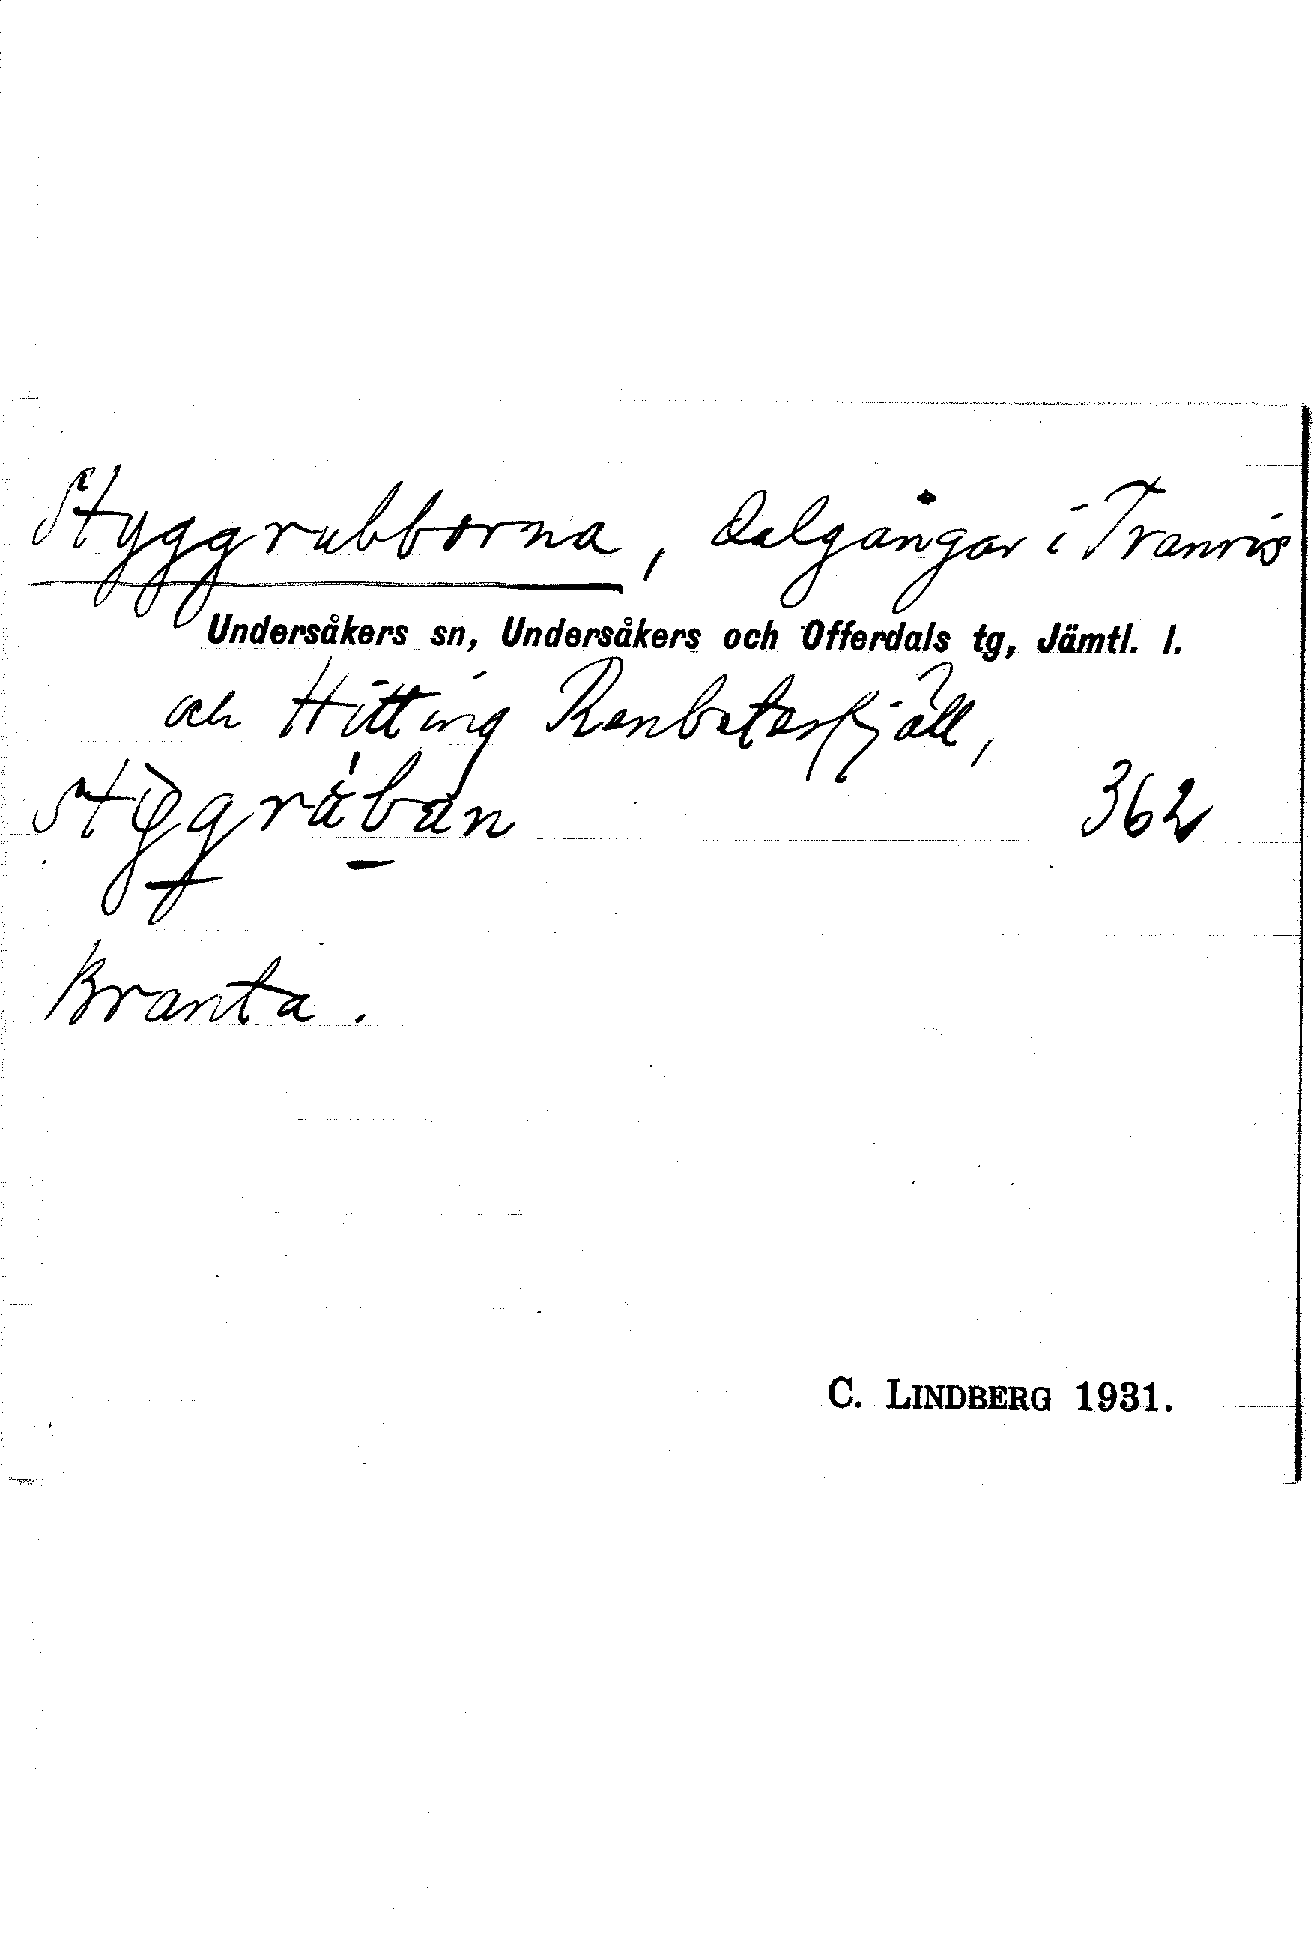 Styggrubborna, dalgångar i Tranris
Undersåkers sn, Undersåkers och Offerdals tg, Jämtl. l.
och Hitting Renbetesfjäll,
362
Branta.
C. LINDBERG 1931.